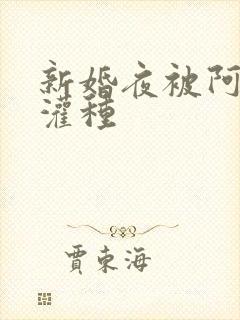 新婚夜被阿
灌種
賈東海